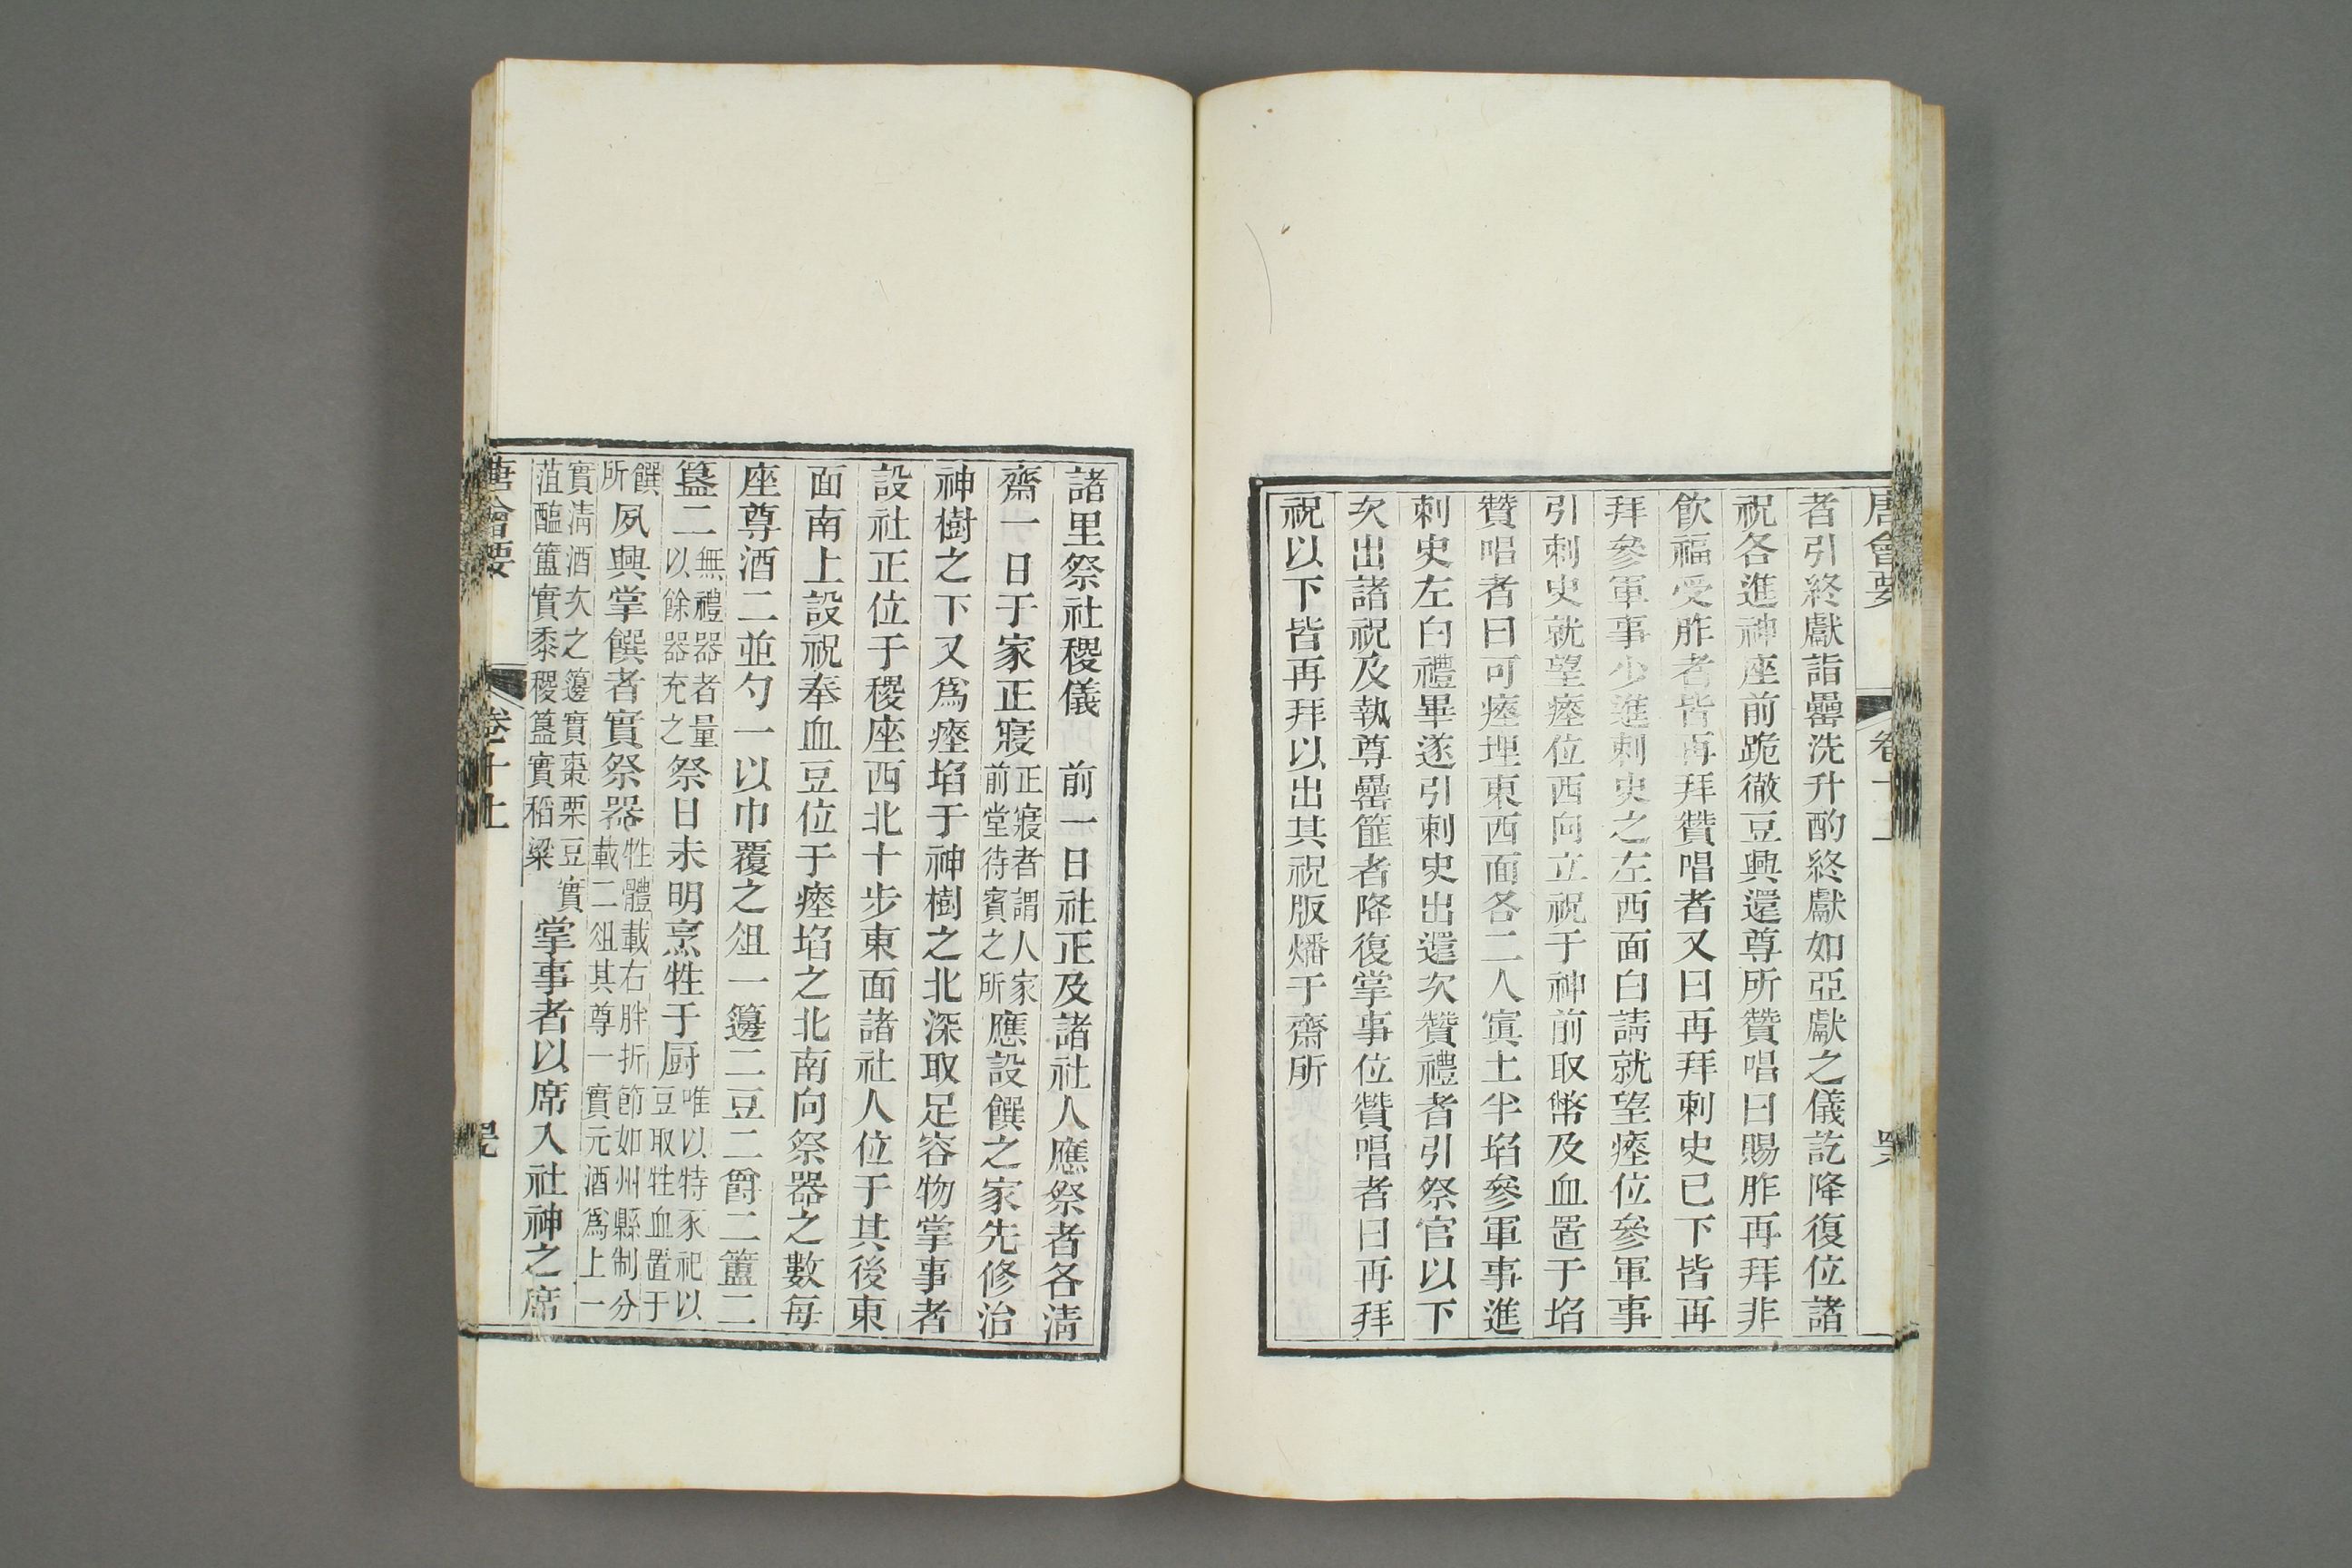 唐會要
卷十上
者引終獻詣罍洗升酌終獻如亞獻之儀訖降復位諸
祝各進神座前跪徹豆興還尊所贊唱曰賜胙再拜非
飲福受胙者皆再拜贊唱者又曰再拜刺史已下皆再
拜參軍事少進刺史之左西面白請就望瘞位參軍事
引刺史就望瘞位西向立祝于神前取幣及血置于埳
贊唱者曰可瘞埋東西面各二人寘土半埳參軍事進
刺史左白禮畢遂引刺史出還次贊禮者引祭官以下
次出諸祝及執尊罍篚者降復掌事位贊唱者曰再拜
祝以下皆再拜以出其祝版燔于齋所
諸里祭社稷儀　前一日社正及諸社人應祭者各清
齋一日于家正寢正寢者謂人家前堂待賓之所應設饌之家先修治
神樹之下又爲瘞埳于神樹之北深取足容物掌事者
設社正位于稷座西北十步東面諸社人位于其後東
面南上設祝奉血豆位于瘞埳之北南向祭器之數每
座尊酒二並勺一以巾覆之俎一籩二豆二爵二簠二
簋二無禮器者量以餘器充之祭日未明烹牲于厨唯以特豕祀以豆取牲血置于
饌所夙興掌饌者實祭器牲體載右胖折節如州縣制分載二俎其尊一實元酒爲上一
實清酒次之籩實棗栗豆實菹醢簠實黍稷簋實稻粱掌事者以席入社神之席
唐會要
卷十上